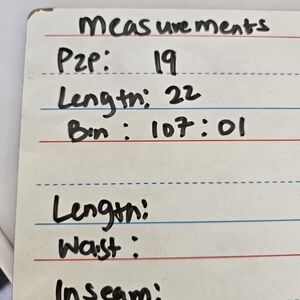 Measurements
P2P: 19
Length: 22
Bin: 107:01
Length:
Waist:
Inseam: